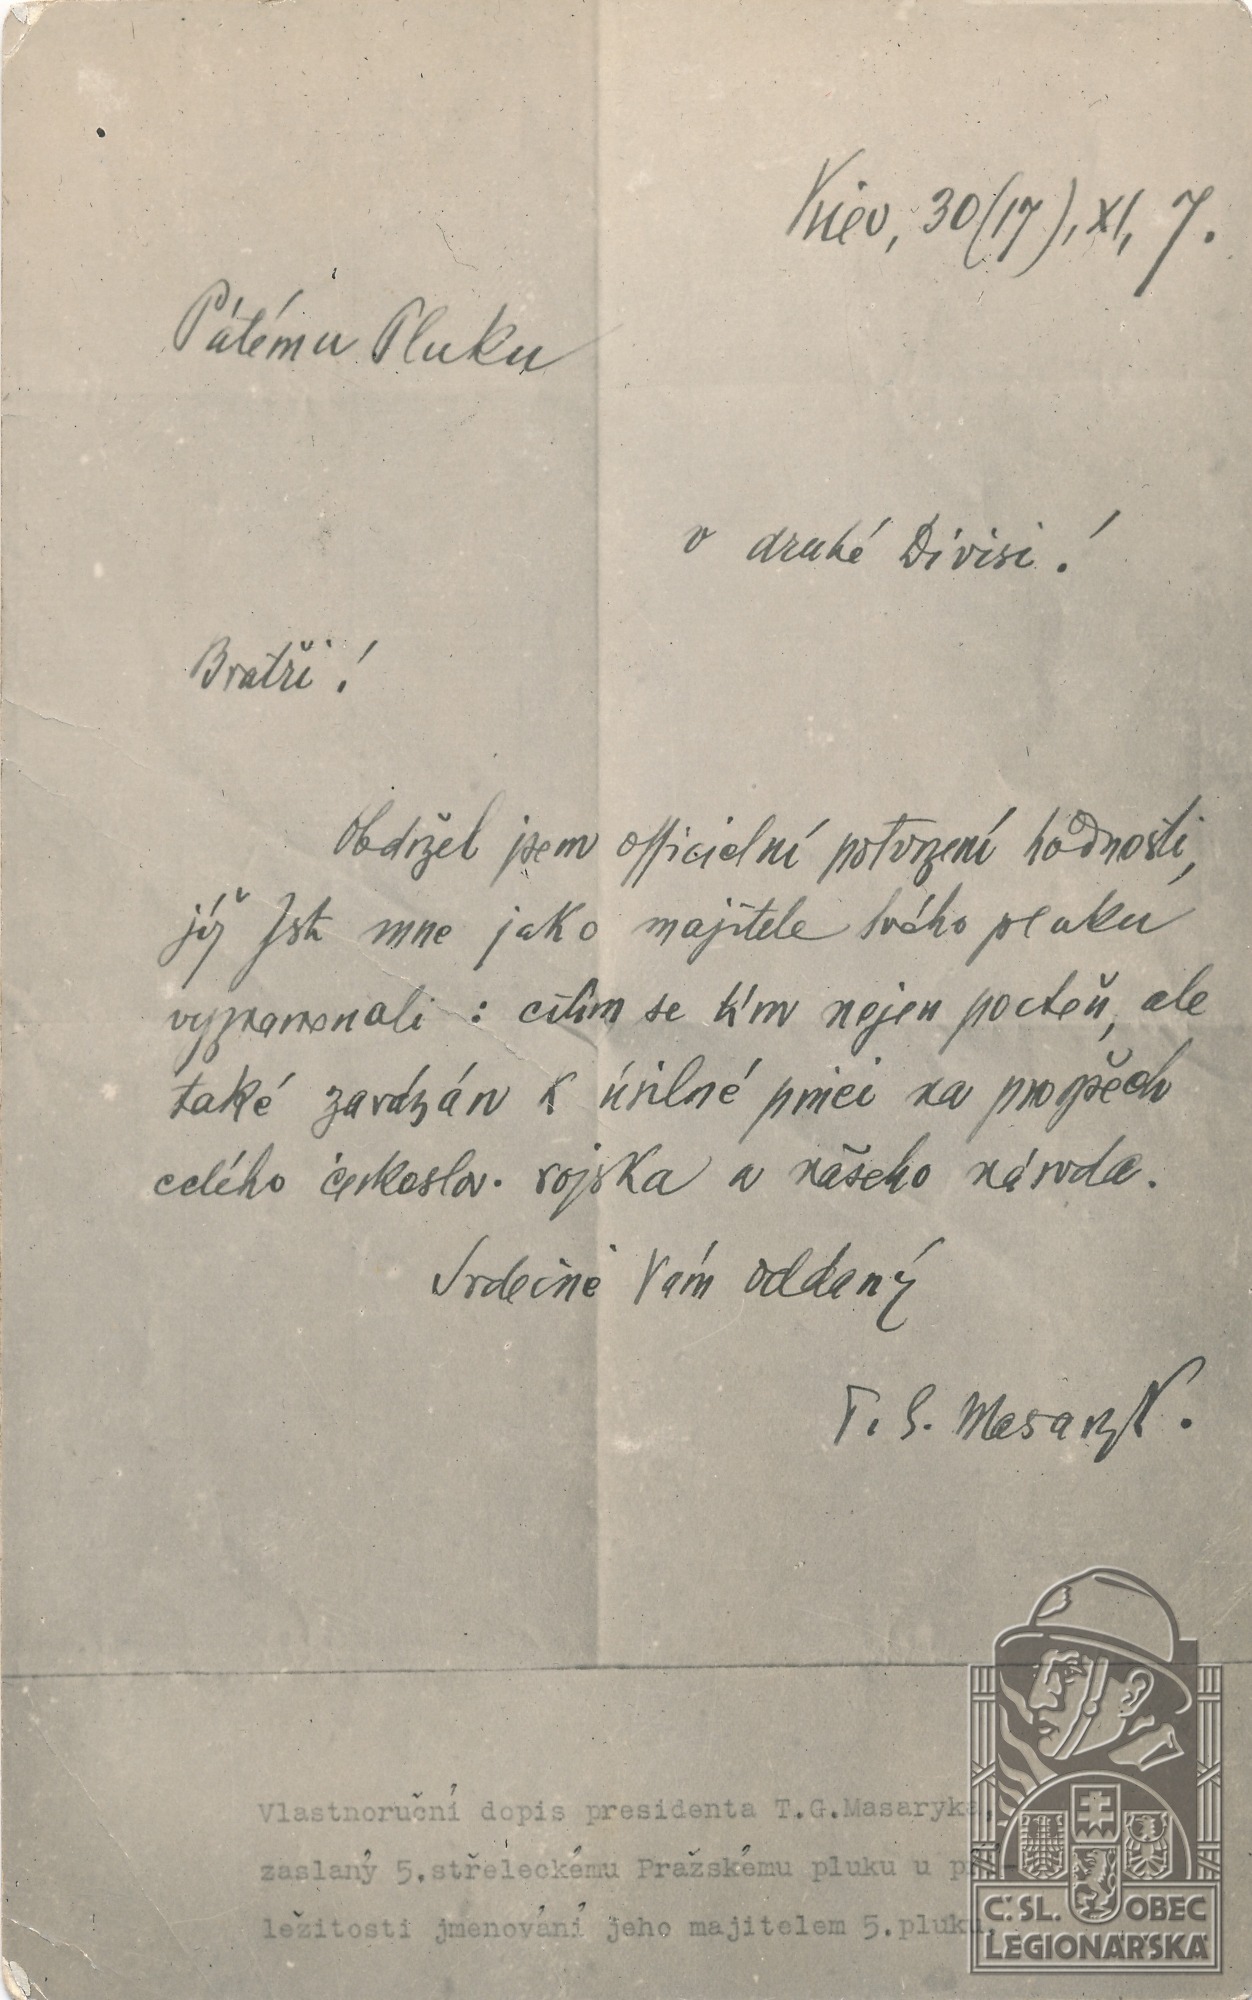 Kiev, 30(17), XI, 7.
Pátému Pluku
v druhé Divisi!
Bratři!
Obdržel jsem officielní potvrzení hodnosti,
jíž Jste mne jako majitele svého pluku
vyznamenali: cítím se tím nejen poctěn, ale
také zavázán k úsilné práci na prospěch
celého českoslov. vojska a našeho národa.
Srdečně Vám oddaný
T. G. Masaryk.
Vlastnoruční dopis presidenta T.G.Masaryka,
zaslaný 5.střeleckému Pražskému pluku u pří-
ležitosti jmenování jeho majitelem 5.pluku.
Č.SL. OBEC
LEGIONÁŘSKÁ